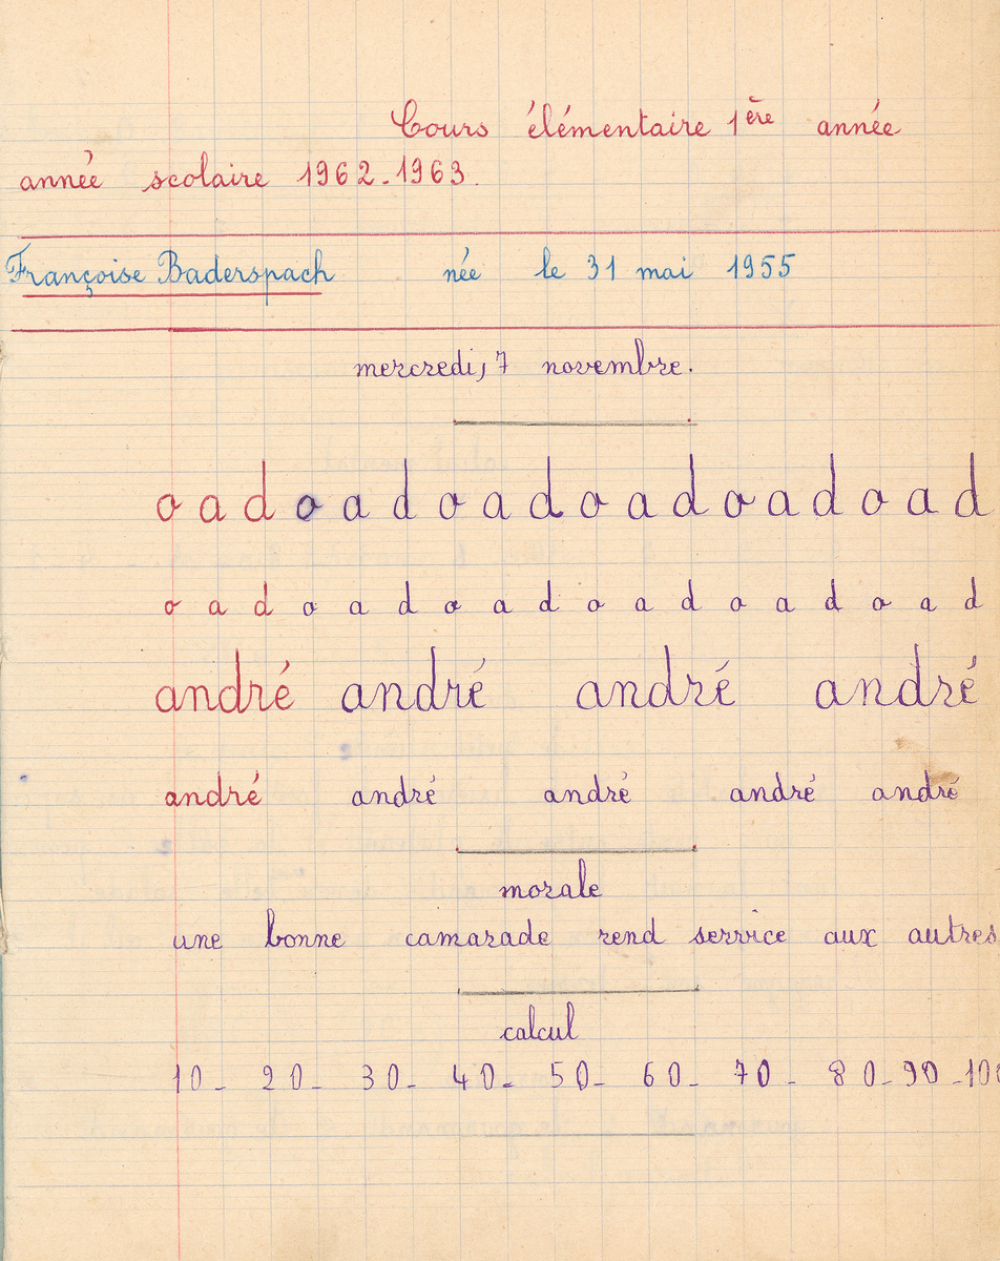 Cours élémentaire 1ère année
année scolaire 1962-1963.
Françoise Baderspach née le 31 mai 1955
mercredi, 7 novembre.
o a d o a d o a d o a d o a d o a d
o a d o a d o a d o a d o a d o a d
andré andré andré andré
andré andré andré andré andré
morale
une bonne camarade rend service aux autres
calcul
10- 20- 30- 40- 50- 60- 70- 80-90-100